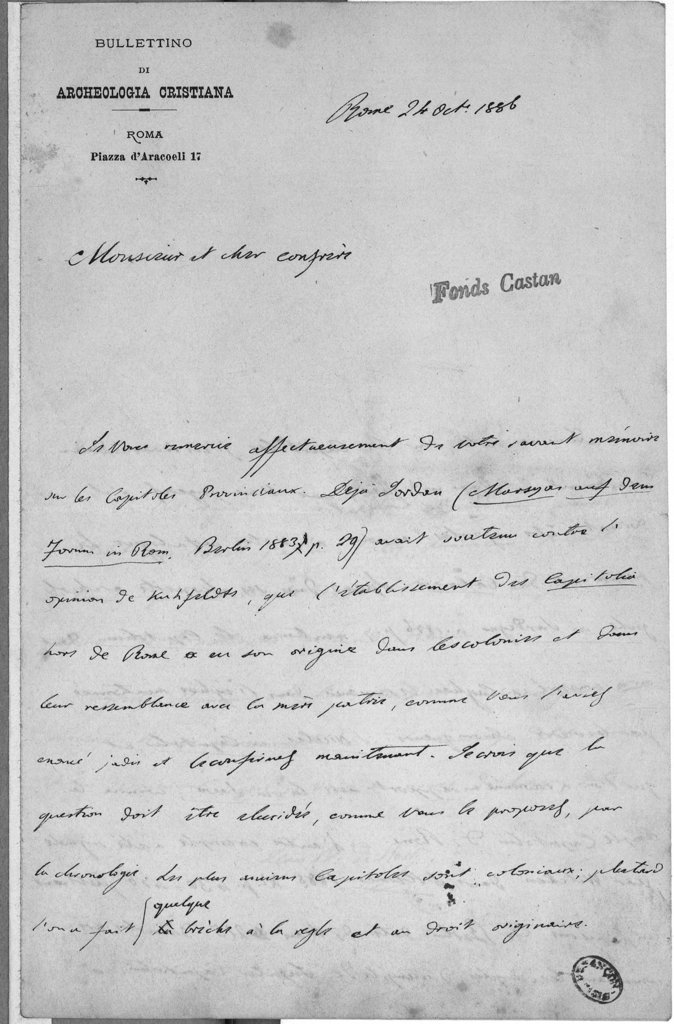 BULLETTINO
DI
ARCHEOLOGIA CRISTIANA
ROMA
Piazza d'Aracoeli 17
Rome 24 Oct. 1886
Monsieur et cher confrère
Fonds Castan
Je vous remercie affectueusement de votre savant mémoire
sur les Capitoles Provinciaux. Déjà Jordan (Marsyas auf dem
Forum in Rom, Berlin 1883, p. 29) avait soutenu contre l'
opinion de Kuhfeldts, que l'établissement des Capitolia
hors de Rome a eu son origine dans les colonies et dans
leur ressemblance avec la mere patrie, comme vous l'avies
enoncé jadis et le confirmez maintenant. Je crois que la
question doit être elucidée, comme vous le proposez, par
la chronologie. Les plus anciens Capitoles sont coloniaux; plus tard
l'on a fait quelque brèche à la regle et au droit originaire.
BESANÇON